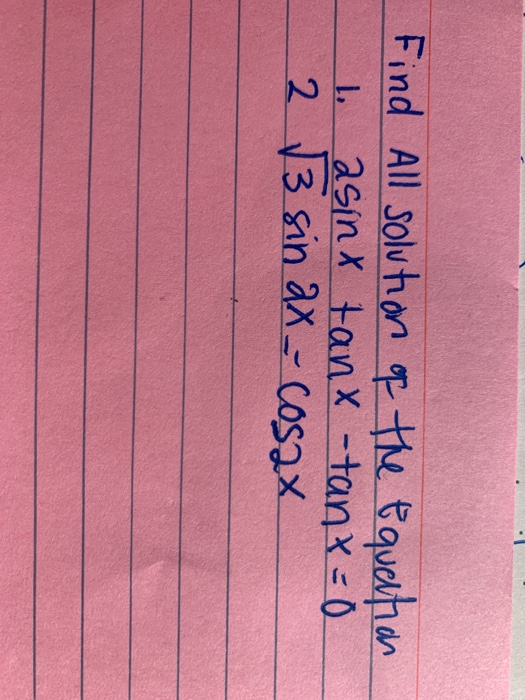 Find All solution of the Equation
1. 2sinx tanx - tanx = 0
2 √3 sin 2x = cos2x